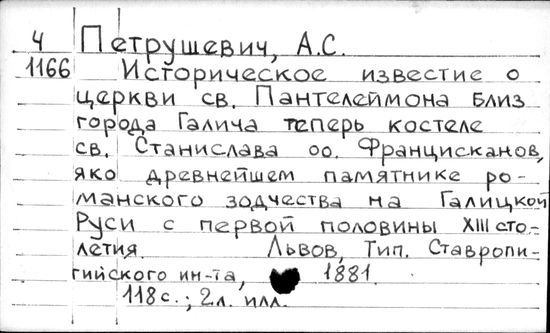 4 Петрушевич, А.С.
1166 Историческое известие о
церкви св. Пантелеймона близ
города Галича теперь костеле
св. Станислава оо. Францисканов,
яко древнейшем памятнике ро-
манского зодчества на Галицкой
Руси с первой половины XIII сто-
летия. Львов, Тип. Ставропи-
гийского ин-та, 1881.
118 с.; 2 л. илл.